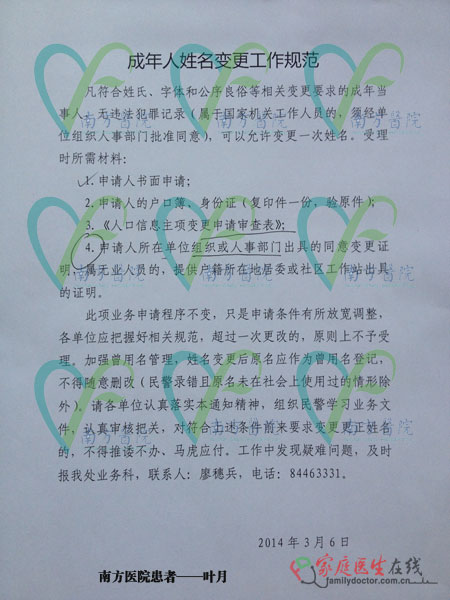 成年人姓名变更工作规范
凡符合姓氏、字体和公序良俗等相关变更要求的成年当
事人，无违法犯罪记录（属于国家机关工作人员的，须经单
位组织人事部门批准同意），可以允许变更一次姓名。受理
时所需材料：
1. 申请人书面申请；
2. 申请人的户口簿、身份证（复印件一份，验原件）；
3. 《人口信息主项变更申请审查表》；
4. 申请人所在单位组织或人事部门出具的同意变更证
明，属无业人员的，提供户籍所在地居委或社区工作站出具
的证明。
此项业务申请程序不变，只是申请条件有所放宽调整，
各单位应把握好相关规范，超过一次更改的，原则上不予受
理。加强曾用名管理，姓名变更后原名应作为曾用名登记，
不得随意删改（民警录错且原名未在社会上使用过的情形除
外）。请各单位认真落实本通知精神，组织民警学习业务文
件，认真审核把关，对符合上述条件前来要求变更更正姓名
的，不得推诿不办、马虎应付。工作中发现疑难问题，及时
报我处业务科，联系人：廖穗兵，电话：84463331。
2014 年 3 月 6 日
南方医院患者——叶月
家庭医生在线
familydoctor.com.cn
南方醫院
南方醫院
南方醫院
南方醫院
南方醫院
南方醫院
南方醫院
南方醫院
南方醫院